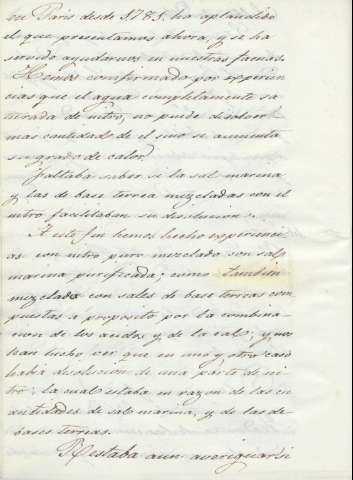 en Paris desde 1785. ha aplaudido
el que presentamos ahora, y se ha
servido ayudarnos en nuestras faenas.
Hemos comfirmado por experien
cias que el agua completamente sa
turada de nitro, no puede disolver
mas cantidad de el si no se aumenta
su grado de calor.
Faltaba saber si la sal marina
y las de base terrea mezcladas con el
nitro facilitaban su disolucion.
A este fin hemos hecho experienci
as con nitro puro mezclado con sal
marina purificada; como tambien
mezclado con sales de base terreas com
puestas a proposito por la combina
cion de los acidos y de la cal; y nos
han hecho ver que en uno y otro caso
habia disolucion de una parte de ni
tro; la cual estaba en razon de las
cantidades de sal marina, y de las de
bases terreas.
Restaba aun averiguar si